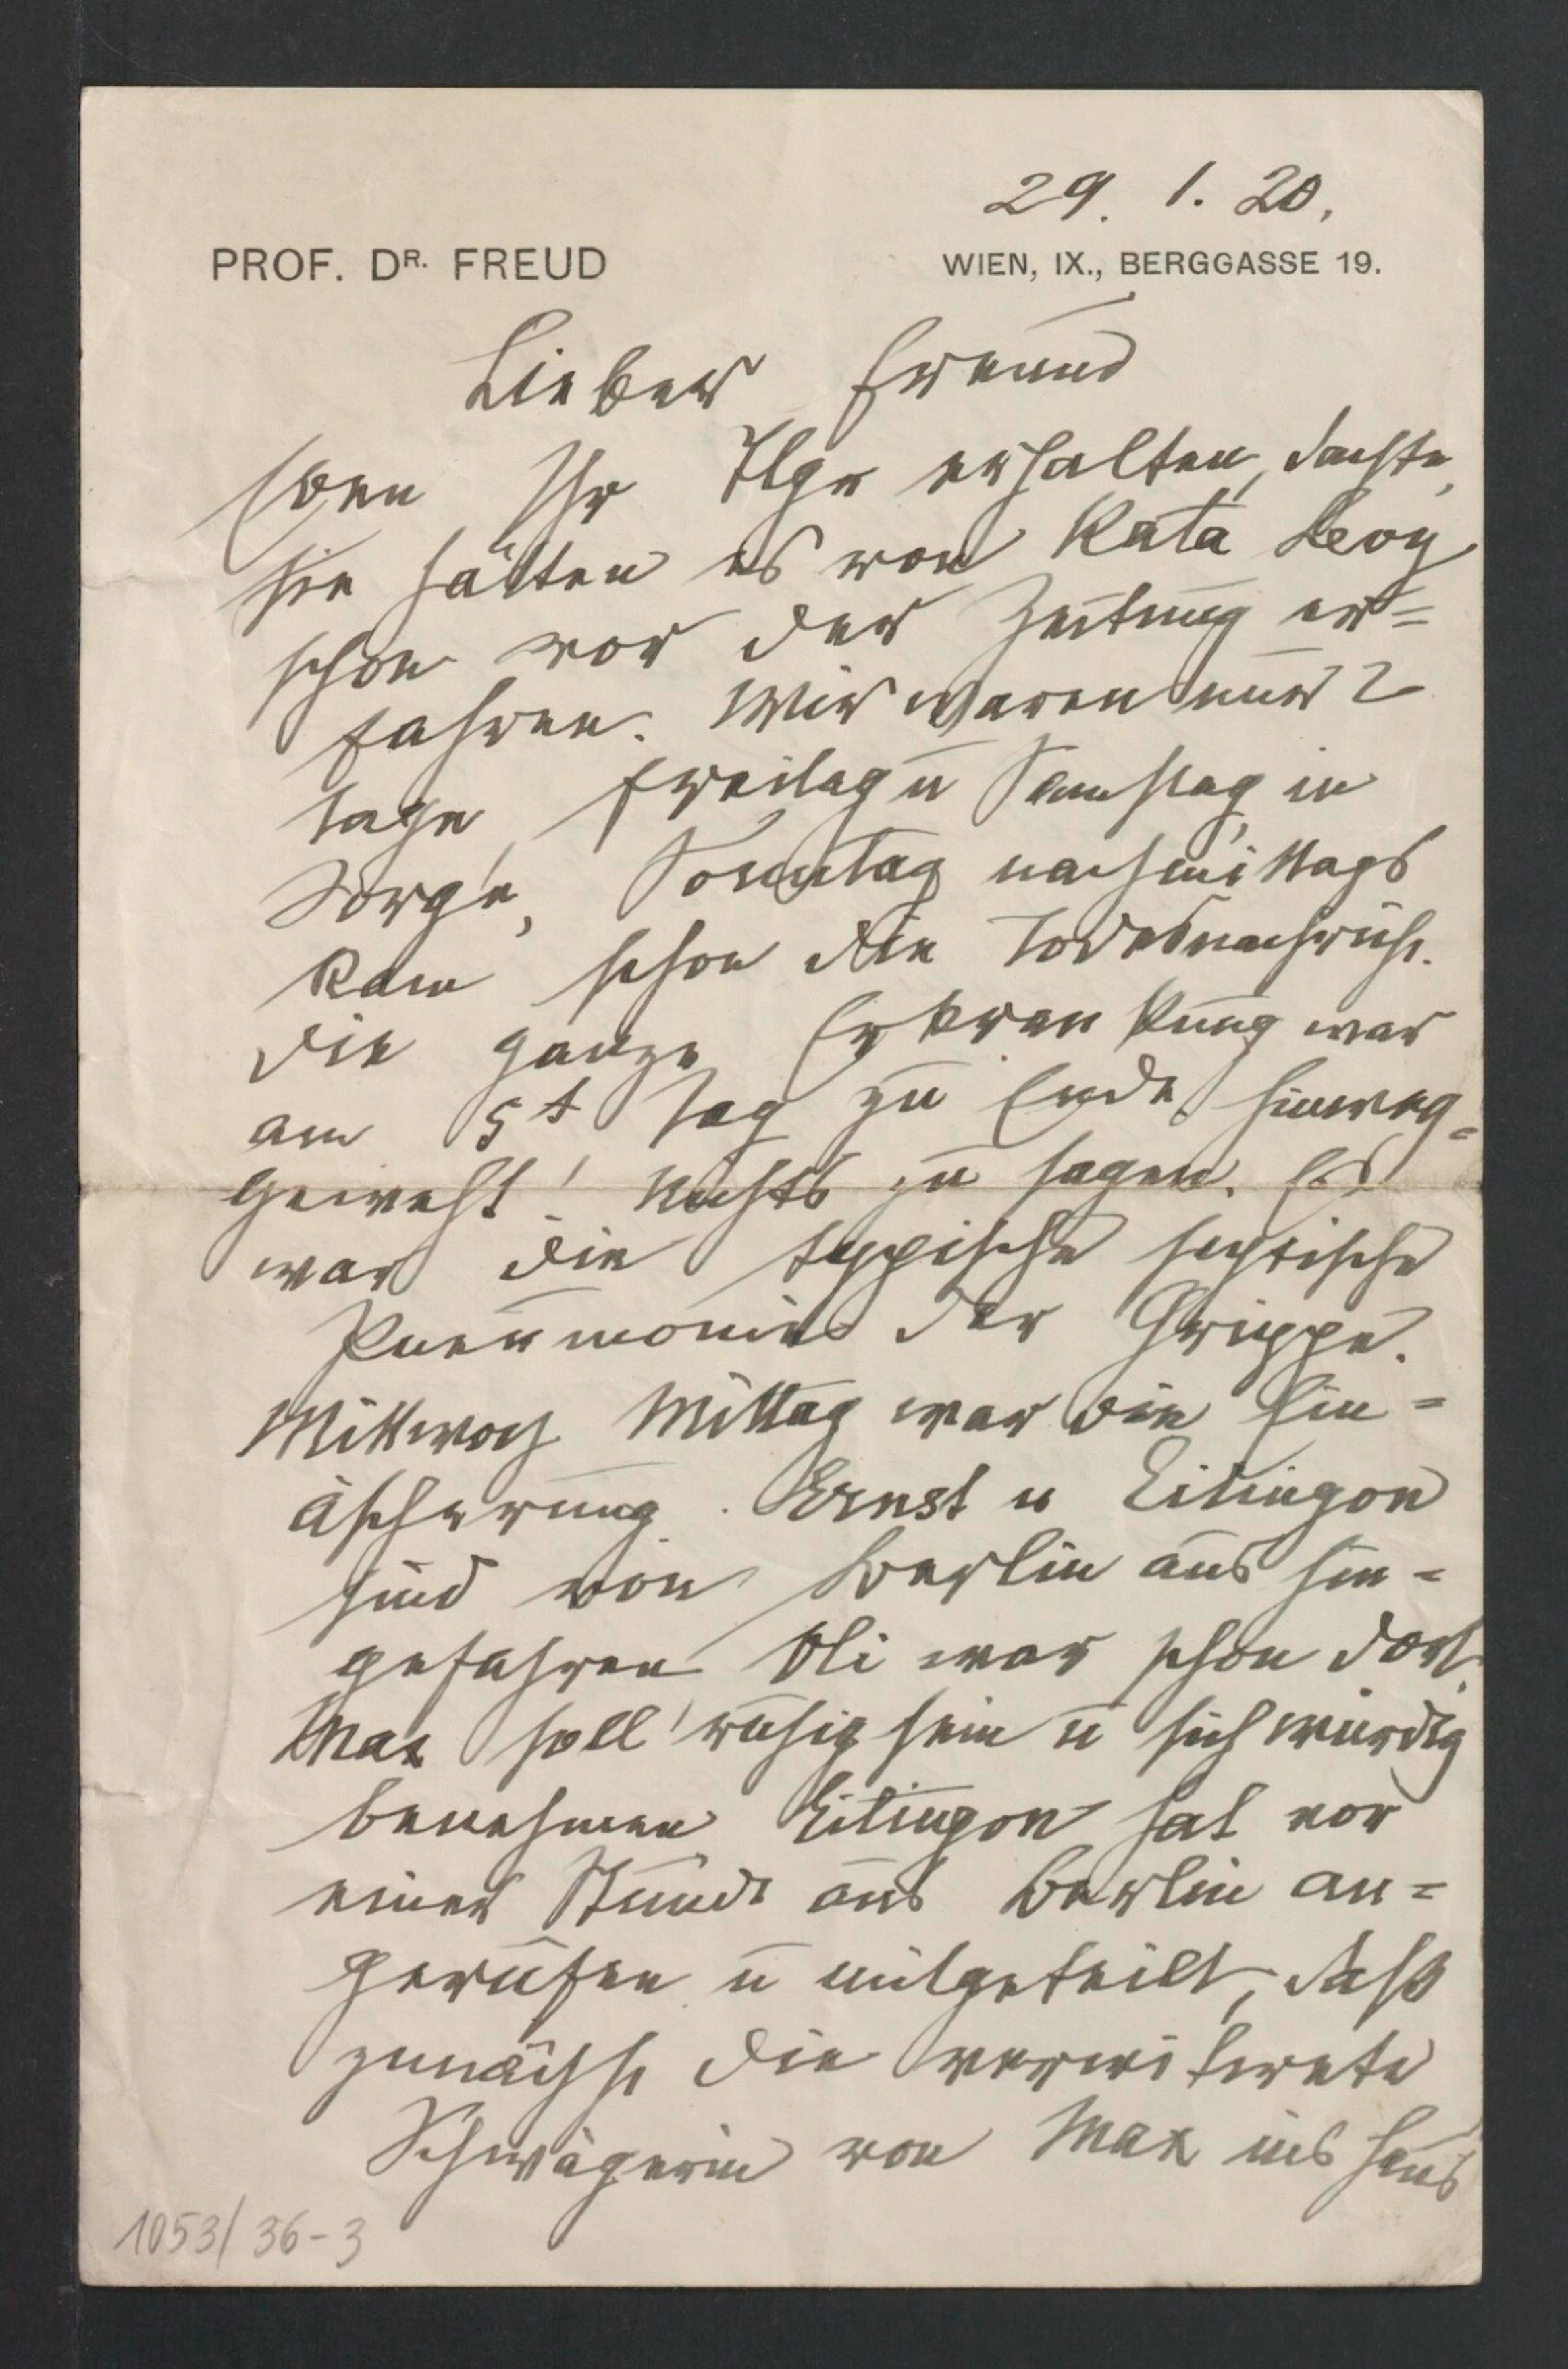 29. 1. 20.
PROF. DR. FREUD
WIEN, IX., BERGGASSE 19.
Lieber Freund
Eben Ihr Tlgr erhalten, dachte,
Sie hätten es von Kata Levy
schon vor der Zeitung er=
fahren. Wir waren nur 2
Tage, Freitag u Samstag in
Sorge, Sonntag nachmittags
kam schon die Todesnachricht.
Die ganze Erkrankung war
am 5t Tag zu Ende, hinweg=
geweht! Nichts zu sagen. Es
war die typische septische
Pneumonie der Grippe.
Mittwoch Mittag war die Ein=
äscherung. Ernst u Eitingon
sind von Berlin aus hin=
gefahren Oli war schon dort.
Max soll ruhig sein u sich würdig
benehmen Eitingon hat vor
einer Stunde aus Berlin an=
gerufen u mitgeteilt, daß
zunächst die verwitwete
Schwägerin von Max ins Haus
1053/36-3